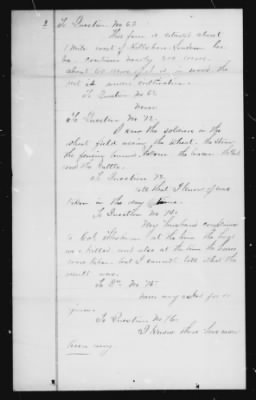 2 To Question No 62
This farm is situated about
1 mile west of Hillsboro Loudoun Co.
Va. contains nearly 200 acres.
about 60 acres of it is in wood, the
rest is under cultivation.
To Question No 63
Never
To Question No 72.
I saw the soldiers in the
wheat field among the wheat. the
the fencing burned, before the
and the cattle.
To Question 73
all that I know of was
taken in the day time.
To Question No 74.
My husband complained
to Col. at the time the hogs
were killed and also at the time the horses
were taken. but I cannot tell what the
result was.
To Qn. No 75
Never any asked for or
given.
To Question No 76.
I know there have never
been any.